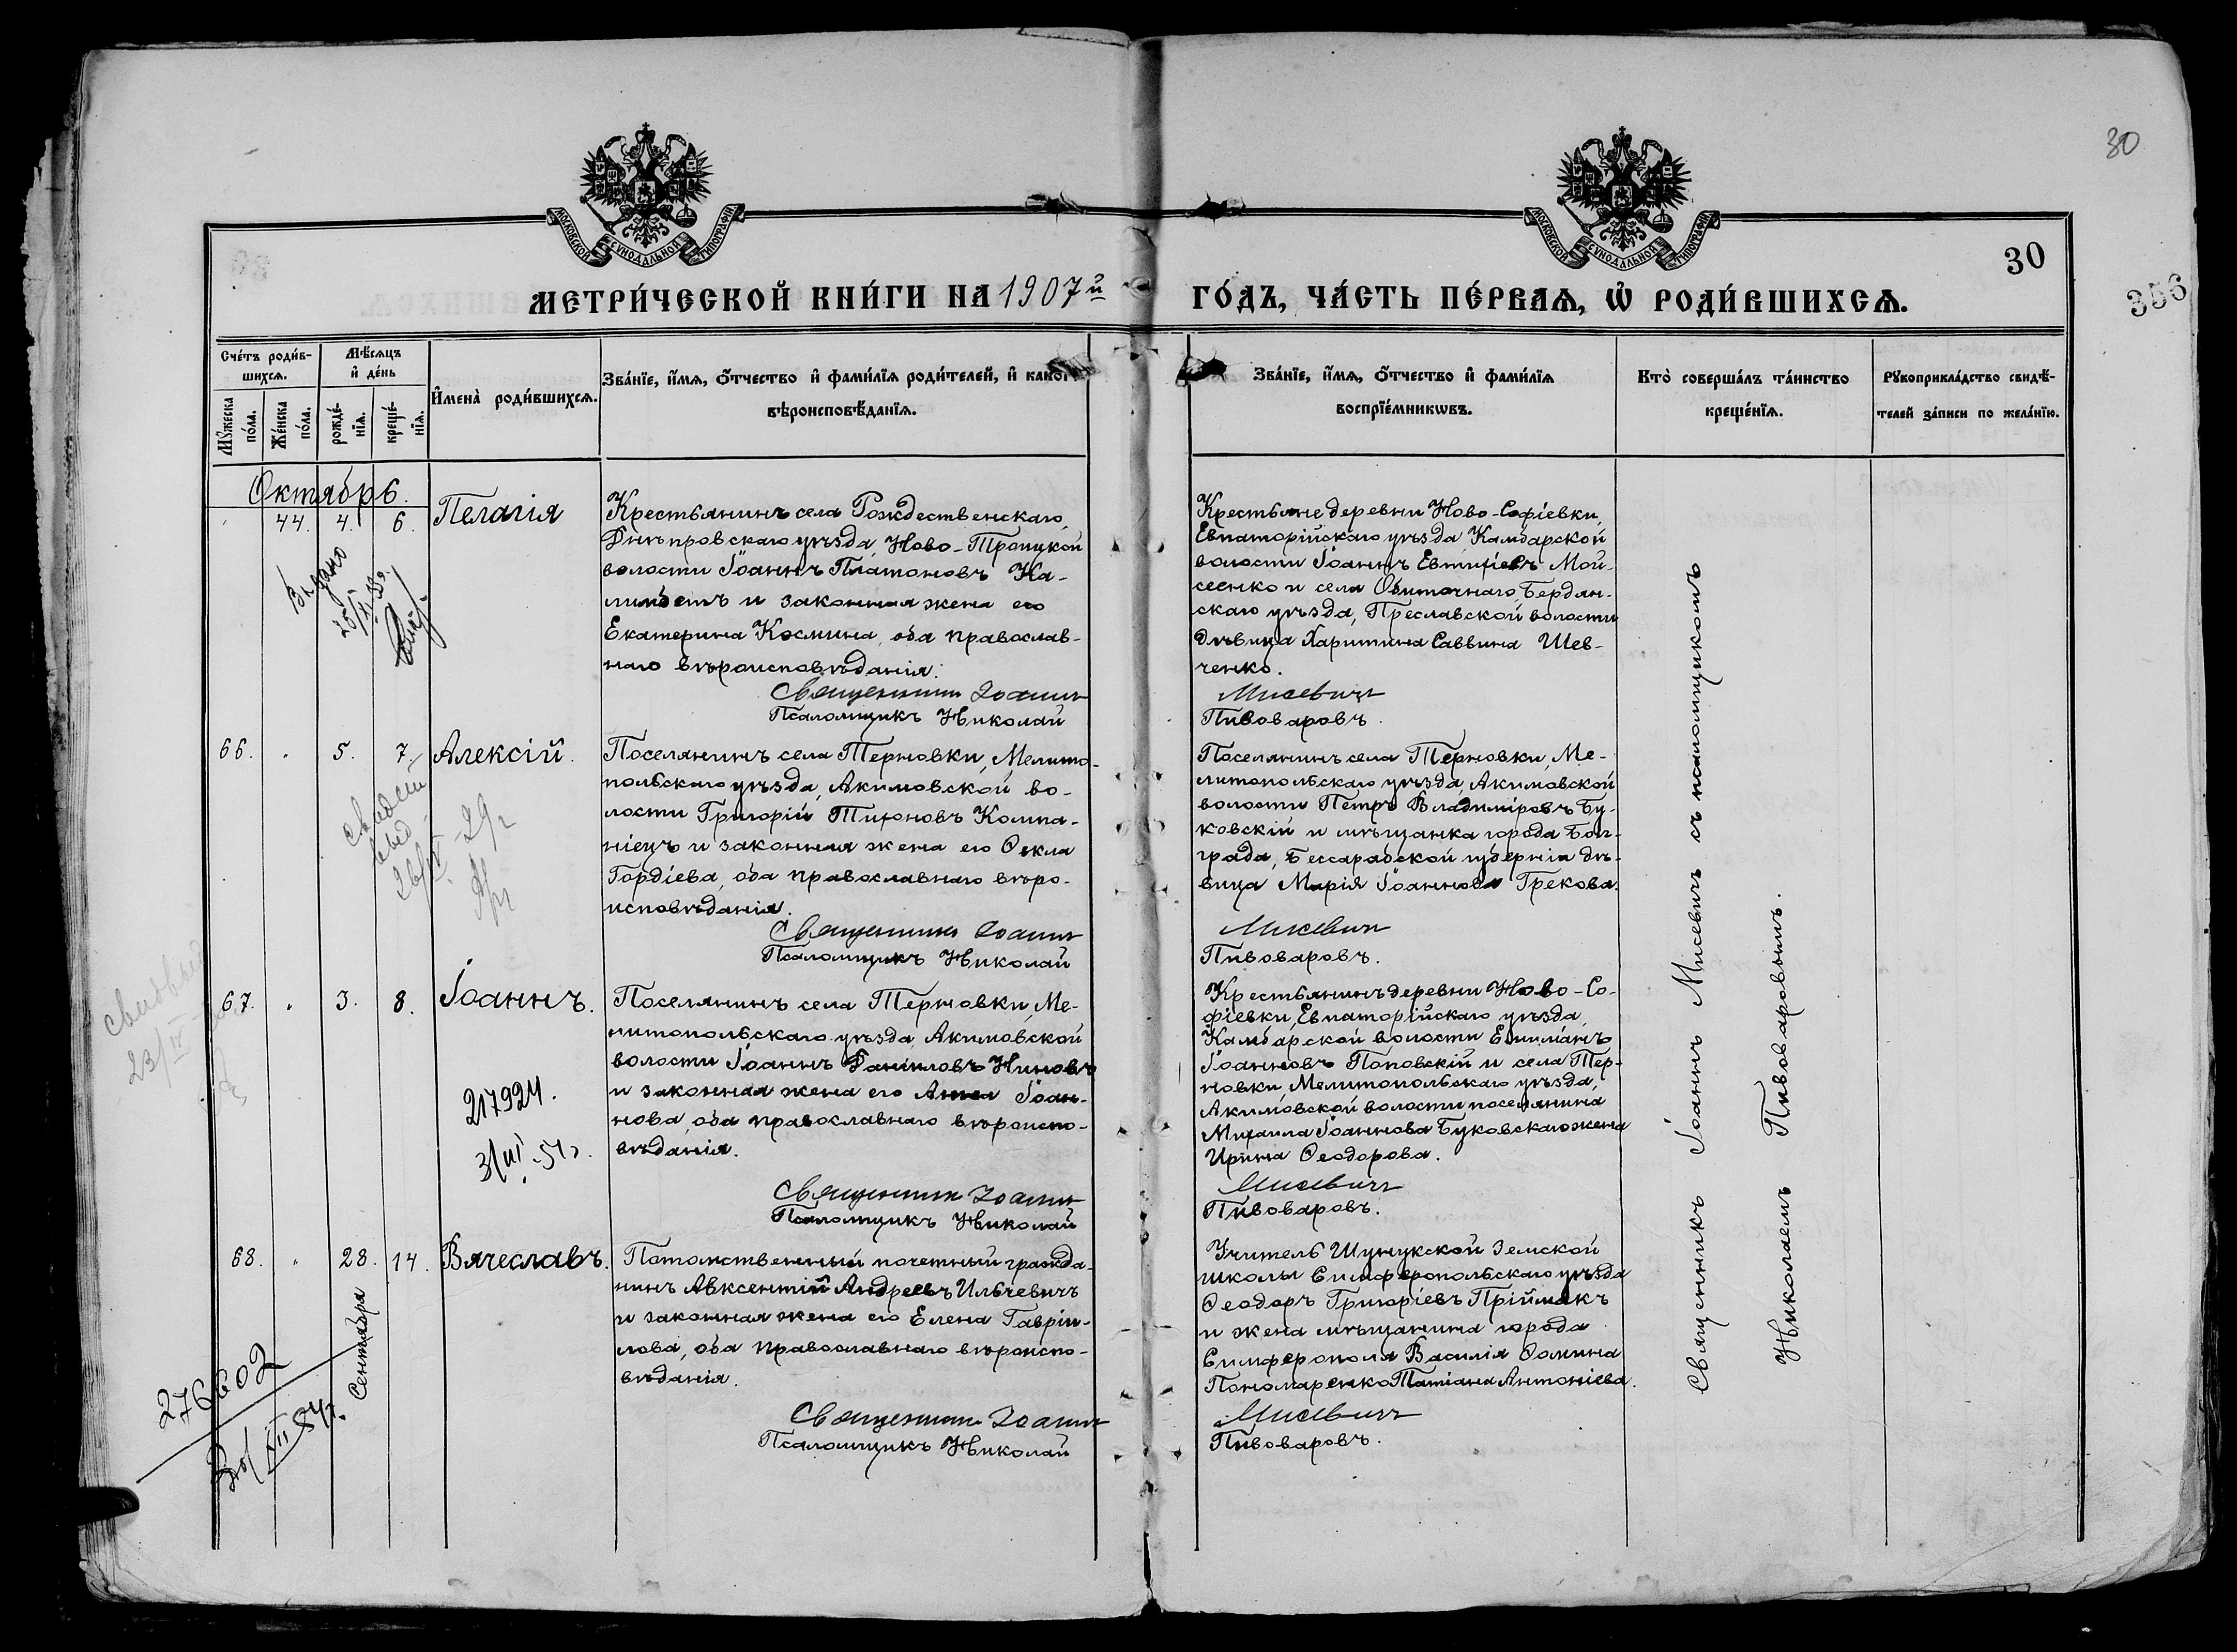 30
МОСКОВСКОЙ СУНОДАЛЬНОЙ ТИПОГРАФІИ
МОСКОВСКОЙ СУНОДАЛЬНОЙ ТИПОГРАФІИ
30
356
МЕТРИ́ЧЕСКОЙ КНИ́ГИ НА 1907й ГО́ДЪ, ЧА́СТЬ ПЕ́РВАѦ, Ѽ РОДИ́ВШИХСѦ.
Сче́тъ роди́в-
шихсѧ.
Мѣ́сѧцъ
и҆ де́нь
Мꙋ́жеска
по́ла.
Же́нска
по́ла.
рожде́-
нїѧ.
креще́-
нїѧ.
И҆мена̀ роди́вшихсѧ.
Зва́нїе, и҆́мѧ, ѻ҆́тчество и҆ фами́лїѧ роди́телей, и҆ како́г
вѣроисповѣ́данїѧ.
Зва́нїе, и҆́мѧ, ѻ҆́тчество и҆ фами́лїѧ
воспрїе́мникѡвъ.
Кто̀ соверша́лъ та́инство
креще́нїѧ.
Рꙋкоприкла́дство свидѣ́-
телей за́писи по жела́нїю.
Октябрь.
44. 4. 6. Пелагія
Крестьянинъ села Рождественскаго,
Днѣпровскаго уѣзда, Ново-Троицкой
волости Іоаннъ Платоновъ Ка-
и законная жена его
Екатерина Космина, оба православ-
наго вѣроисповѣданія.
Священникъ Іоаннъ
Псаломщикъ Николай
Крестьяне деревни Ново-Софіевки,
Евпаторійскаго уѣзда, Камбарской
волости Іоаннъ Евтихіевъ Мой-
сеенко и села Обиточнаго, Бердян-
скаго уѣзда, Преславской волости
дѣвица Харитина Саввина Шев-
ченко.
Мисевичъ
Пивоваровъ.
66. " 5. 7. Алексій.
Поселянинъ села Терновки, Мелито-
польскаго уѣзда, Акимовской во-
лости Григорій Тихоновъ Компа-
ніецъ и законная жена его Ѳекла
Гордіева, оба православнаго вѣро-
исповѣданія.
Священникъ Іоаннъ
Псаломщикъ Николай
Поселянинъ села Терновки, Ме-
литопольскаго уѣзда, Акимовской
волости Петръ Владиміровъ Бу-
ковскій и мѣщанка города Бол-
града, Бессарабской губерніи дѣ-
вица Марія Іоаннова Грекова.
Мисевичъ
Пивоваровъ.
26/IV-29г
67. " 3. 8. Іоаннъ.
Поселянинъ села Терновки, Ме-
литопольскаго уѣзда, Акимовской
волости Іоаннъ Даніиловъ Ниновъ
и законная жена его Анна Іоан-
нова, оба православнаго вѣроиспо-
вѣданія.
Священникъ Іоаннъ
Псаломщикъ Николай
Крестьянинъ деревни Ново-Со-
фіевки, Евпаторійскаго уѣзда,
Камбарской волости Емиліанъ
Іоанновъ Поповскій и села Тер-
новки, Мелитопольскаго уѣзда,
Акимовской волости поселянина
Михаила Іоаннова Буковскаго жена
Ирина Ѳеодорова.
Мисевичъ
Пивоваровъ.
217924.
68. " 28. 14. Вячеславъ.
Сентября
Потомственный почетный гражда-
нинъ Авксентій Андреевъ Ильчевичъ
и законная жена его Елена Гавріи-
лова, оба православнаго вѣроиспо-
вѣданія.
Священникъ Іоаннъ
Псаломщикъ Николай
Учитель Шунукской Земской
школы Симферопольскаго уѣзда
Ѳеодоръ Григоріевъ Пріймакъ
и жена мѣщанина города
Симферополя Василія Ѳомина
Пономаренко Татіана Антоніева.
Мисевичъ
Пивоваровъ.
276602
Священникъ Іоаннъ Мисевичъ съ псаломщикомъ
Николаемъ Пивоваровымъ.